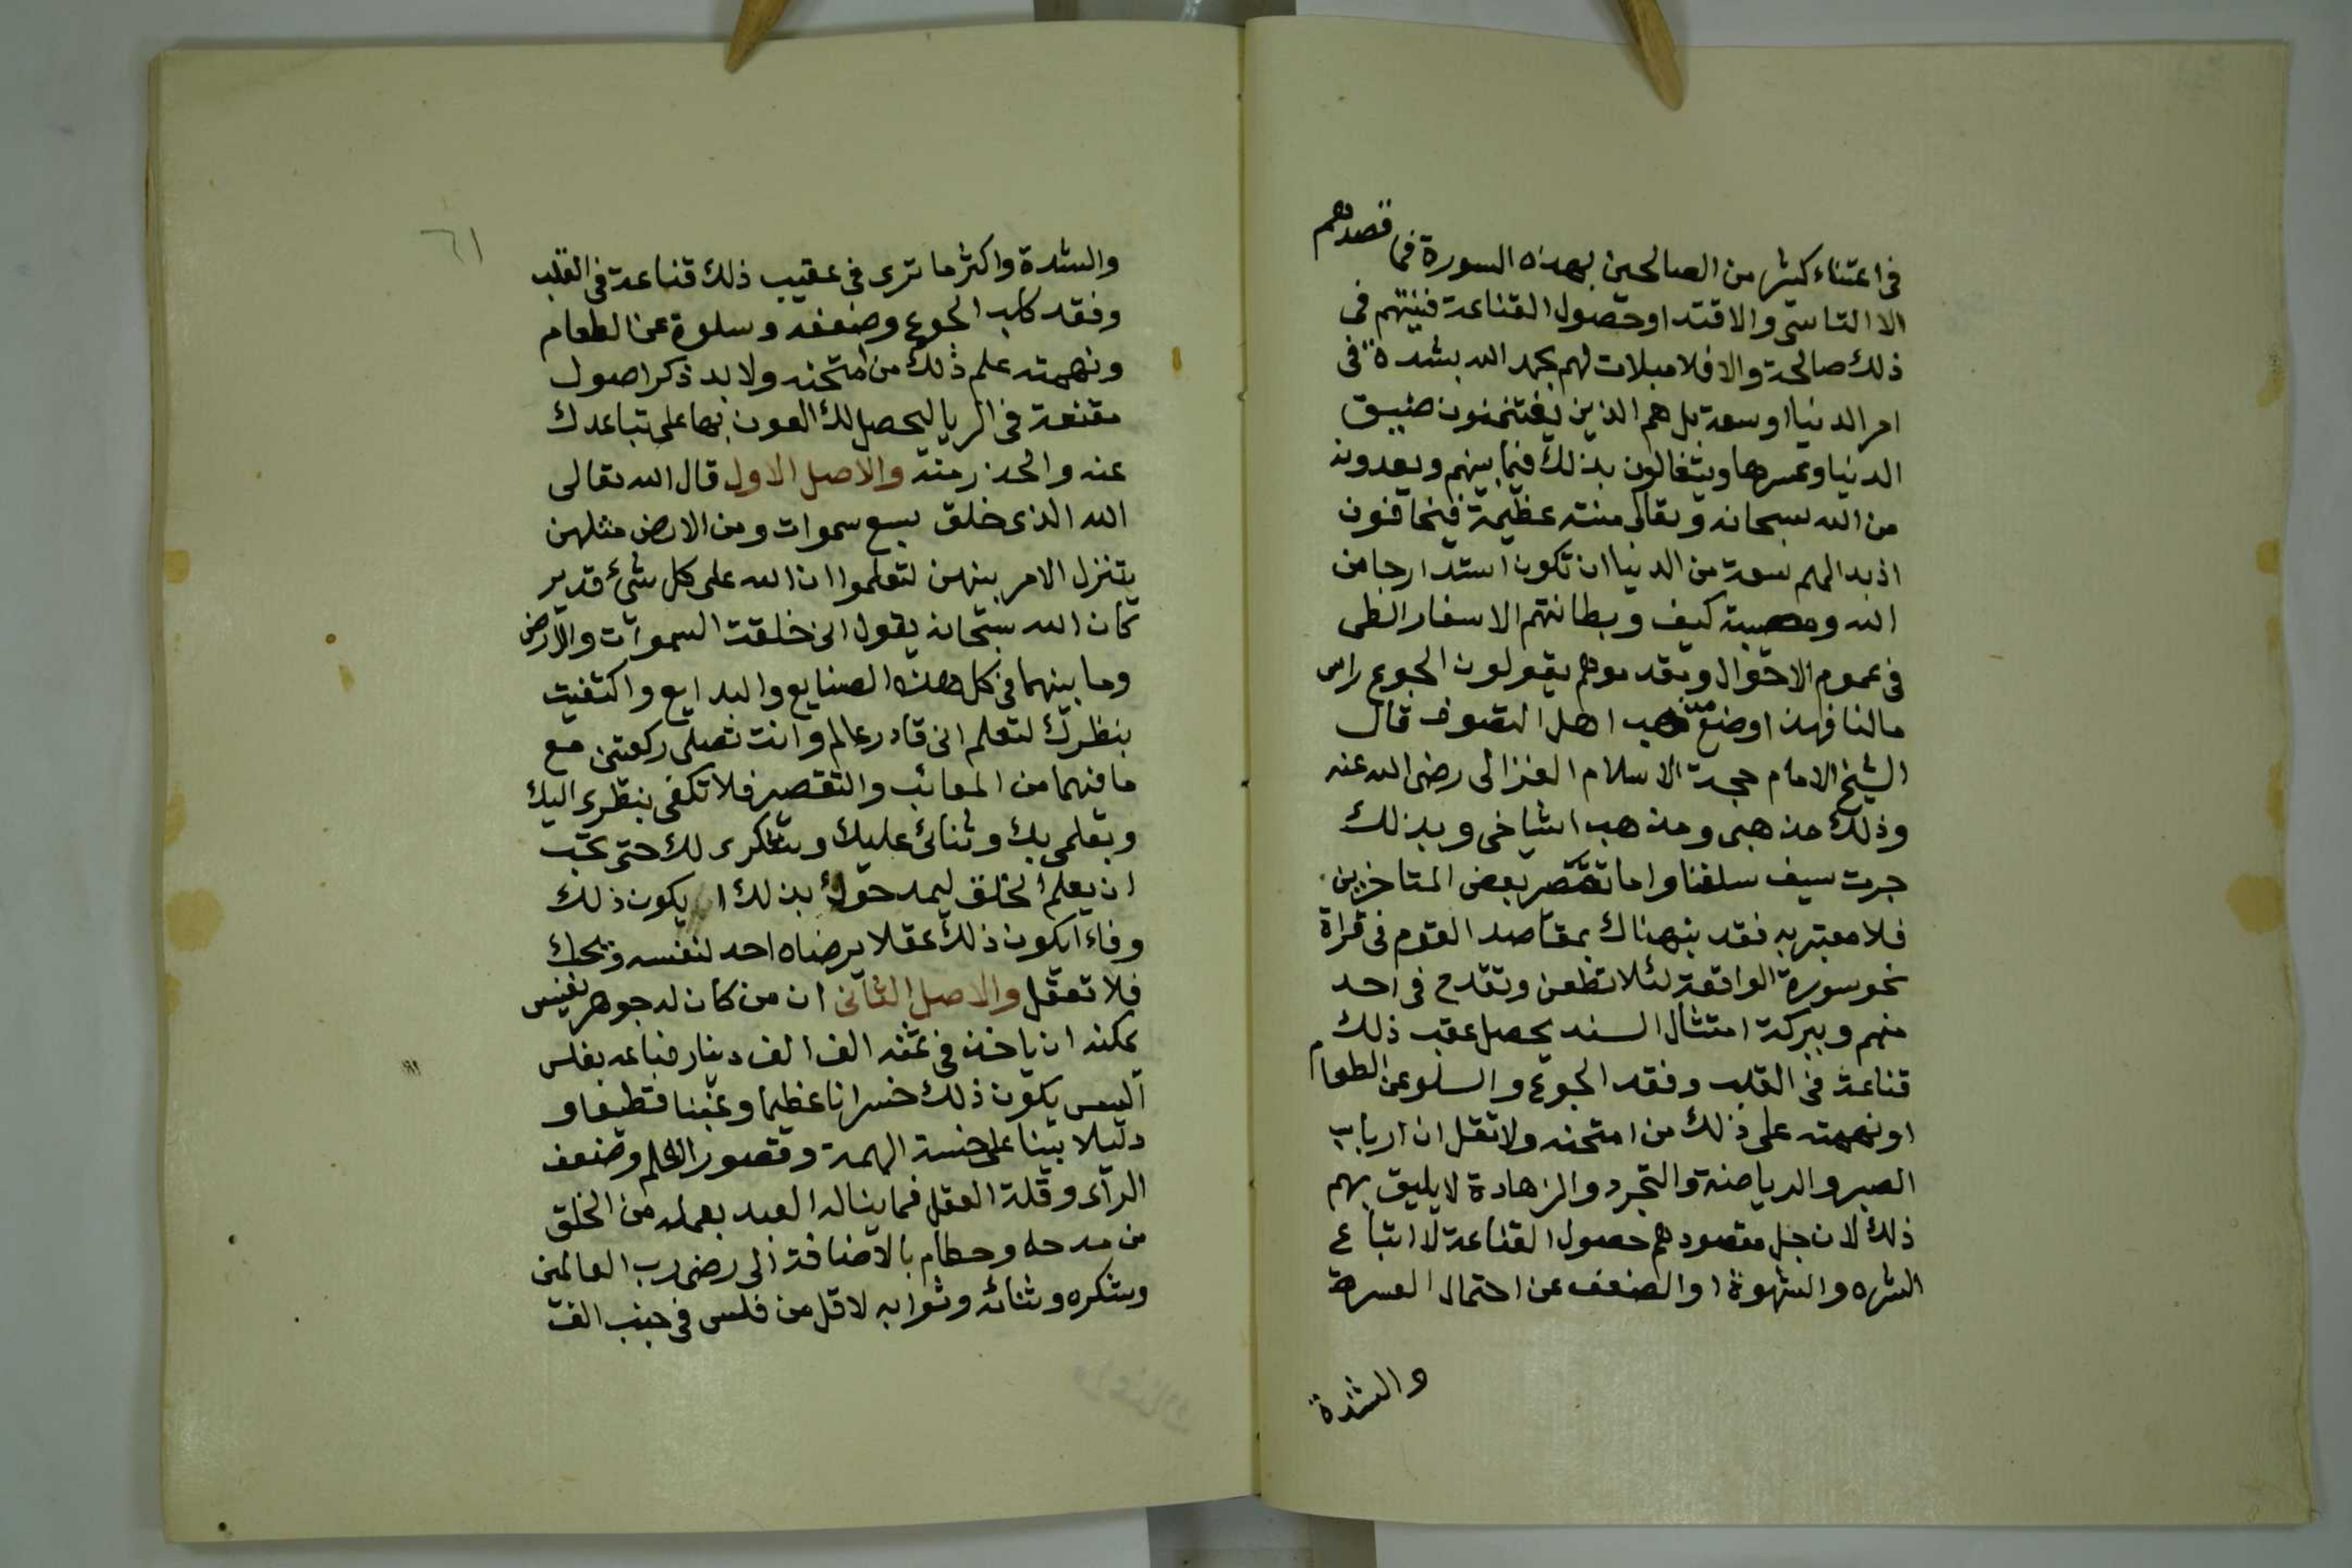 فى اعتناء كثير من الصالحين بهذه السورة فما قصدهم
الا التاسى والاقتد اوحصول القناعة فنيتهم فى
ذلك صالحة والا فلا مبلات لهم بحمد الله بشدة فى
امر الدنيا اوسعة بل هم الذين يغتنمون ضيق
الدنيا وعسرها ويتغالون بذلك فيما بينهم ويعدونه
من الله سبحانه وتعالى منته عظيمة فيخافون
اذ بدالهم سعة من الدنيا ان تكون استدارجا من
الله ومصيبة كيف وبطانتهم الاسفار الطى
فى عموم الاحوال ومقدموهم يقولون الجوع راس
مالنا فهذا وضع مذهب اهل التصوف قال
الشيخ الامام حجة الاسلام الغزالى رضى الله عنه
وذلك مذهبى ومذهب اشياخى وبذلك
جرت سيف سلفنا واما تقصر بعض المتاخرين
فلا معتبر به فقد بنهناك بمقاصد القوم فى قراة
نحو سورة الواقعة لئلا تطعن وتقدح فى احد
منهم وببركة امتثال السند يحصل عقب ذلك
قناعة فى القلب وفقد الجوع والسلو عن الطعام
اونهمته على ذلك من امتحنه ولا تقل ان ارباب
الصبر والرياضة والتجرد والزهادة لا يليق بهم
ذلك لان جل مقصودهم حصول القناعة لا اتباع
الشره والشهوة او الضعف عن احتمال العسرة
والشدة
٦١
والشدة واكثر ما ترى فى عقيب ذلك قناعة فى القلب
وفقد كلب الجوع وضعفه وسلوة عن الطعام
ونهمته علم ذلك من امتحنه ولا بد ذكر اصول
مقنعة فى الريا ليحصل لك العون بها على تباعدك
عنه والحذر منه والاصل الاول قال الله تعالى
الله الذى خلق سبع سموات ومن الارض مثلهن
يتنزل الامر بينهن لتعلموا ان الله على كل شئ قدير
كان الله سبحانه يقول انى خلقت السموات والارض
وما بينهما فى كل هذه الصنايع والبدايع واكتفيت
بنظرك لتعلم انى قادر عالم وانت تصلى ركعتين مع
ما فيهما من المعائب والتقصير فلا تكفى بنظرى اليك
وبعلمى بك وثنائى عليك وبشكرى لك حتى تحب
ان يعلم الخلق ليمدحوك بذلك ا يكون ذلك
وفاء ايكون ذلك عقلا يرضاه احد لنفسه ويحك
فلا تعقل والاصل الثانى ان من كان له جوهر نفيس
يمكنه ان ياخذ فى ثمنه الف الف دينار فباعه بفلس
اليس يكون ذلك خسرانا عظيما وغبنا فظيعا و
دليلا بينا على خسة الهمة وقصور العلم وضعف
الرأى وقلة العقل فما يناله العبد بعمله من الخلق
من مدحه وحطام بالاضافة الى رضى رب العالمين
وشكره وثنائه وثوابه لاقل من فلس فى جنب الف